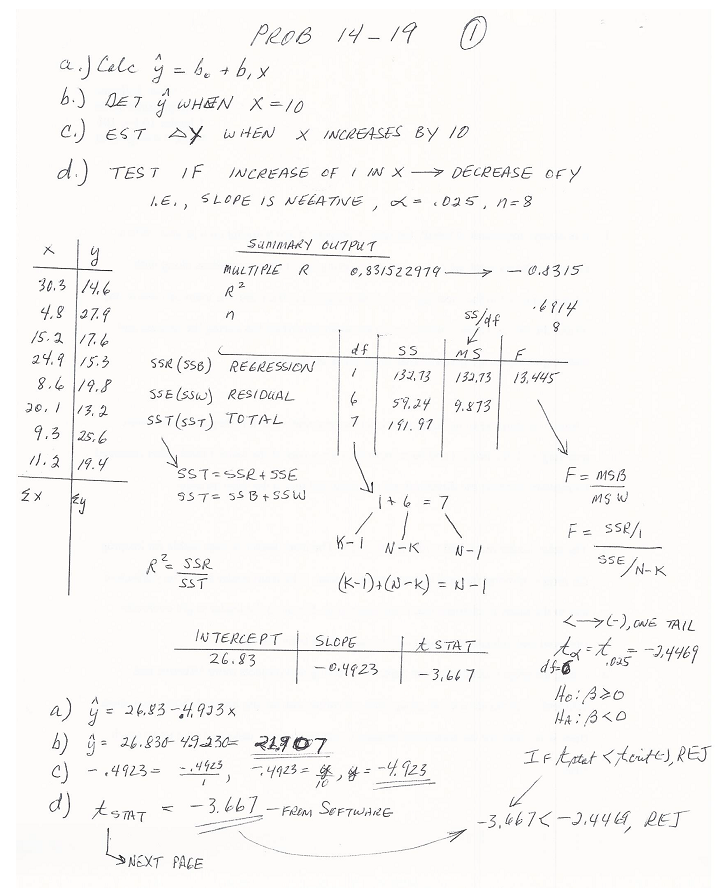 PROB 14-19 ①
a.) Calc ŷ = b₀ + b₁x
b.) DET ŷ WHEN X = 10
c.) EST ΔY WHEN X INCREASES BY 10
d.) TEST IF INCREASE OF 1 IN X → DECREASE OF Y
I.E., SLOPE IS NEGATIVE, α = .025, n = 8
SUMMARY OUTPUT
x y
30.3 14.6
4.8 27.9
15.2 17.6
24.9 15.3
8.6 19.8
20.1 13.2
9.3 25.6
11.2 19.4
Σx Σy
MULTIPLE R 0.831522979 → -0.8315
R² .6914
n 8
SS/df
df SS MS F
SSR (SSB) REGRESSION 1 132.73 132.73 13.445
SSE (SSW) RESIDUAL 6 59.24 9.873
SST (SST) TOTAL 7 191.97
SST = SSR + SSE
SST = SSB + SSW
1 + 6 = 7
K-1 N-K N-1
(K-1)+(N-K) = N-1
R² = SSR/SST
F = MSB/MSW
F = SSR/1 / SSE/N-K
INTERCEPT SLOPE t STAT
26.83 -0.4923 -3.667
< → (-), ONE TAIL
tα = t.025 = -2.4469
df=6
HO: β ≥ 0
HA: β < 0
If tstat < tcrit(-), REJ
-3.667 < -2.4469, REJ
a) ŷ = 26.83 - .4923x
b) ŷ = 26.830 - 4.9230 = 21.907
c) -.4923 = -.4923/1, -.4923 = y/10, y = -4.923
d) tSTAT = -3.667 - FROM SOFTWARE
NEXT PAGE